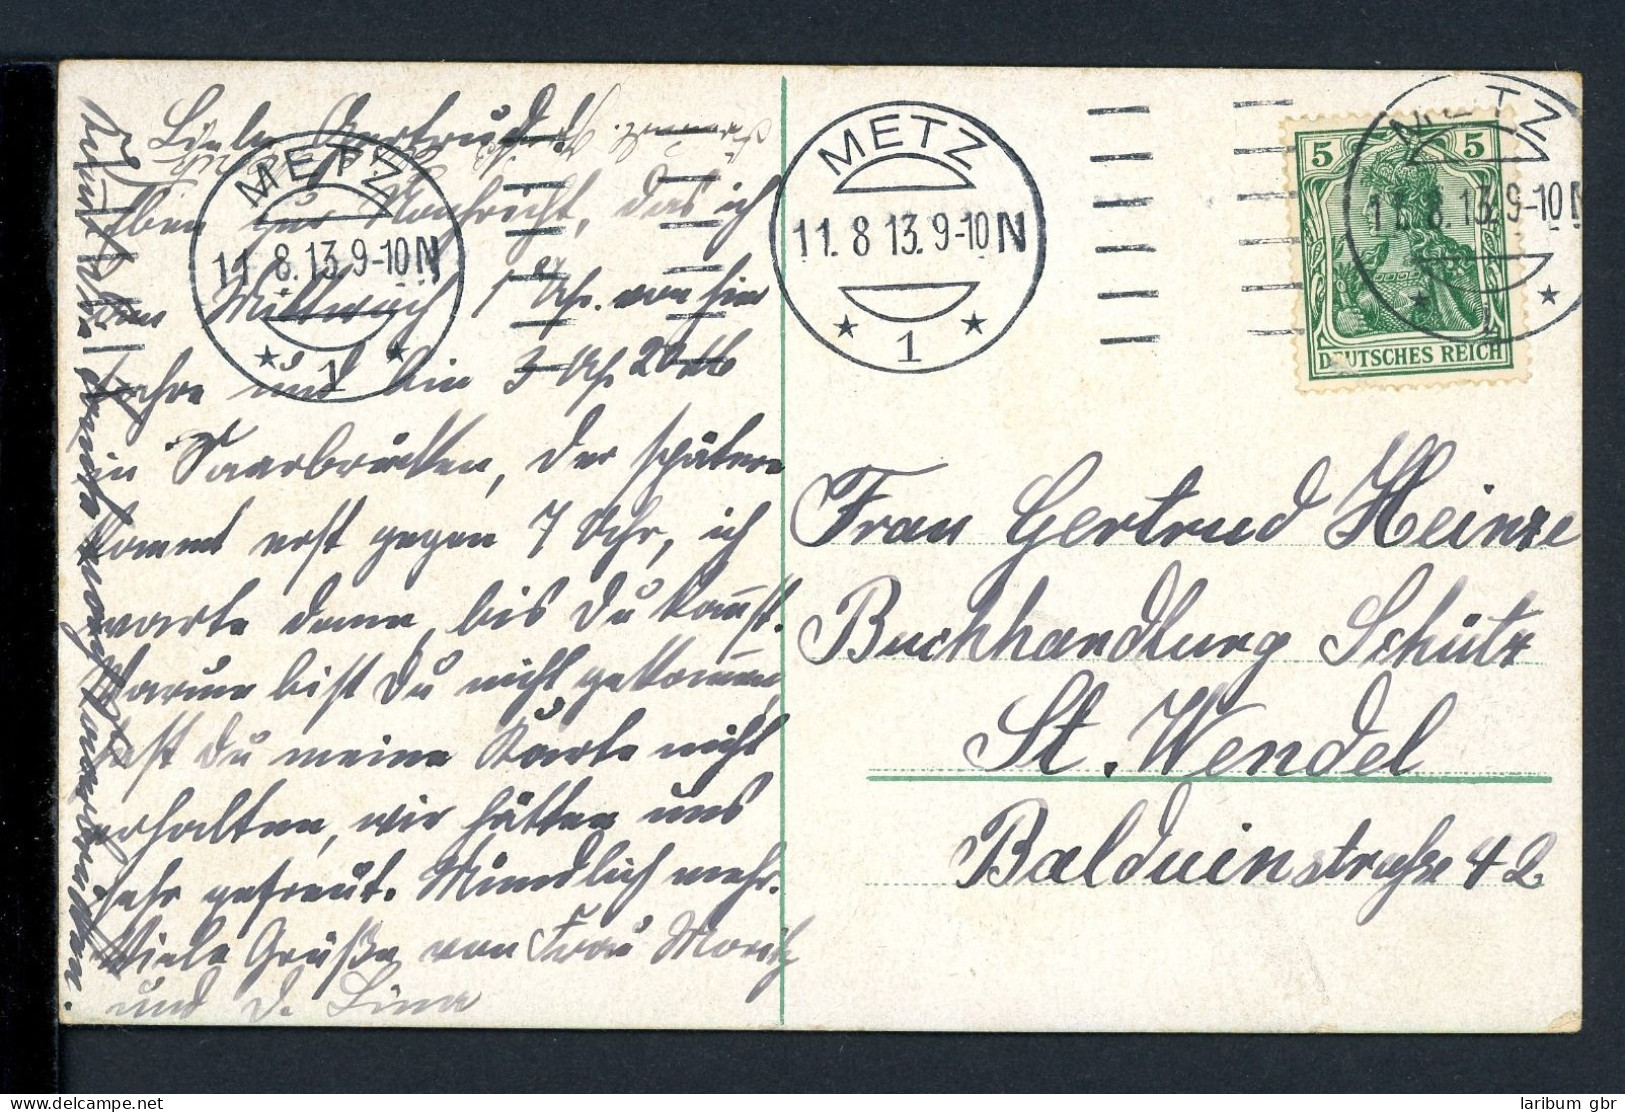 Liebe Gertrud!
Eben zur Nachricht, das ich
am Mittwoch 1 Uhr von hier
fahre und bin 3 Uhr 20
in Saarbrücken, der spätere
kommt erst gegen 7 Uhr, ich
warte dann, bis Du kommst.
Warum bist Du nicht gekommen,
hast Du meine Karte nicht
erhalten, wir hätten uns
sehr gefreut. Mündlich mehr.
Viele Grüße von Frau Moritz
und d. Lina
METZ
11.8.13.9-10N
1
METZ
11.8.13.9-10N
1
METZ
11.8.13.9-10N
5 5
DEUTSCHES REICH
Frau Gertrud Heinze
Buchhandlung Schütz
St. Wendel
Balduinstraße 42
delcampe.net
laribum gbr